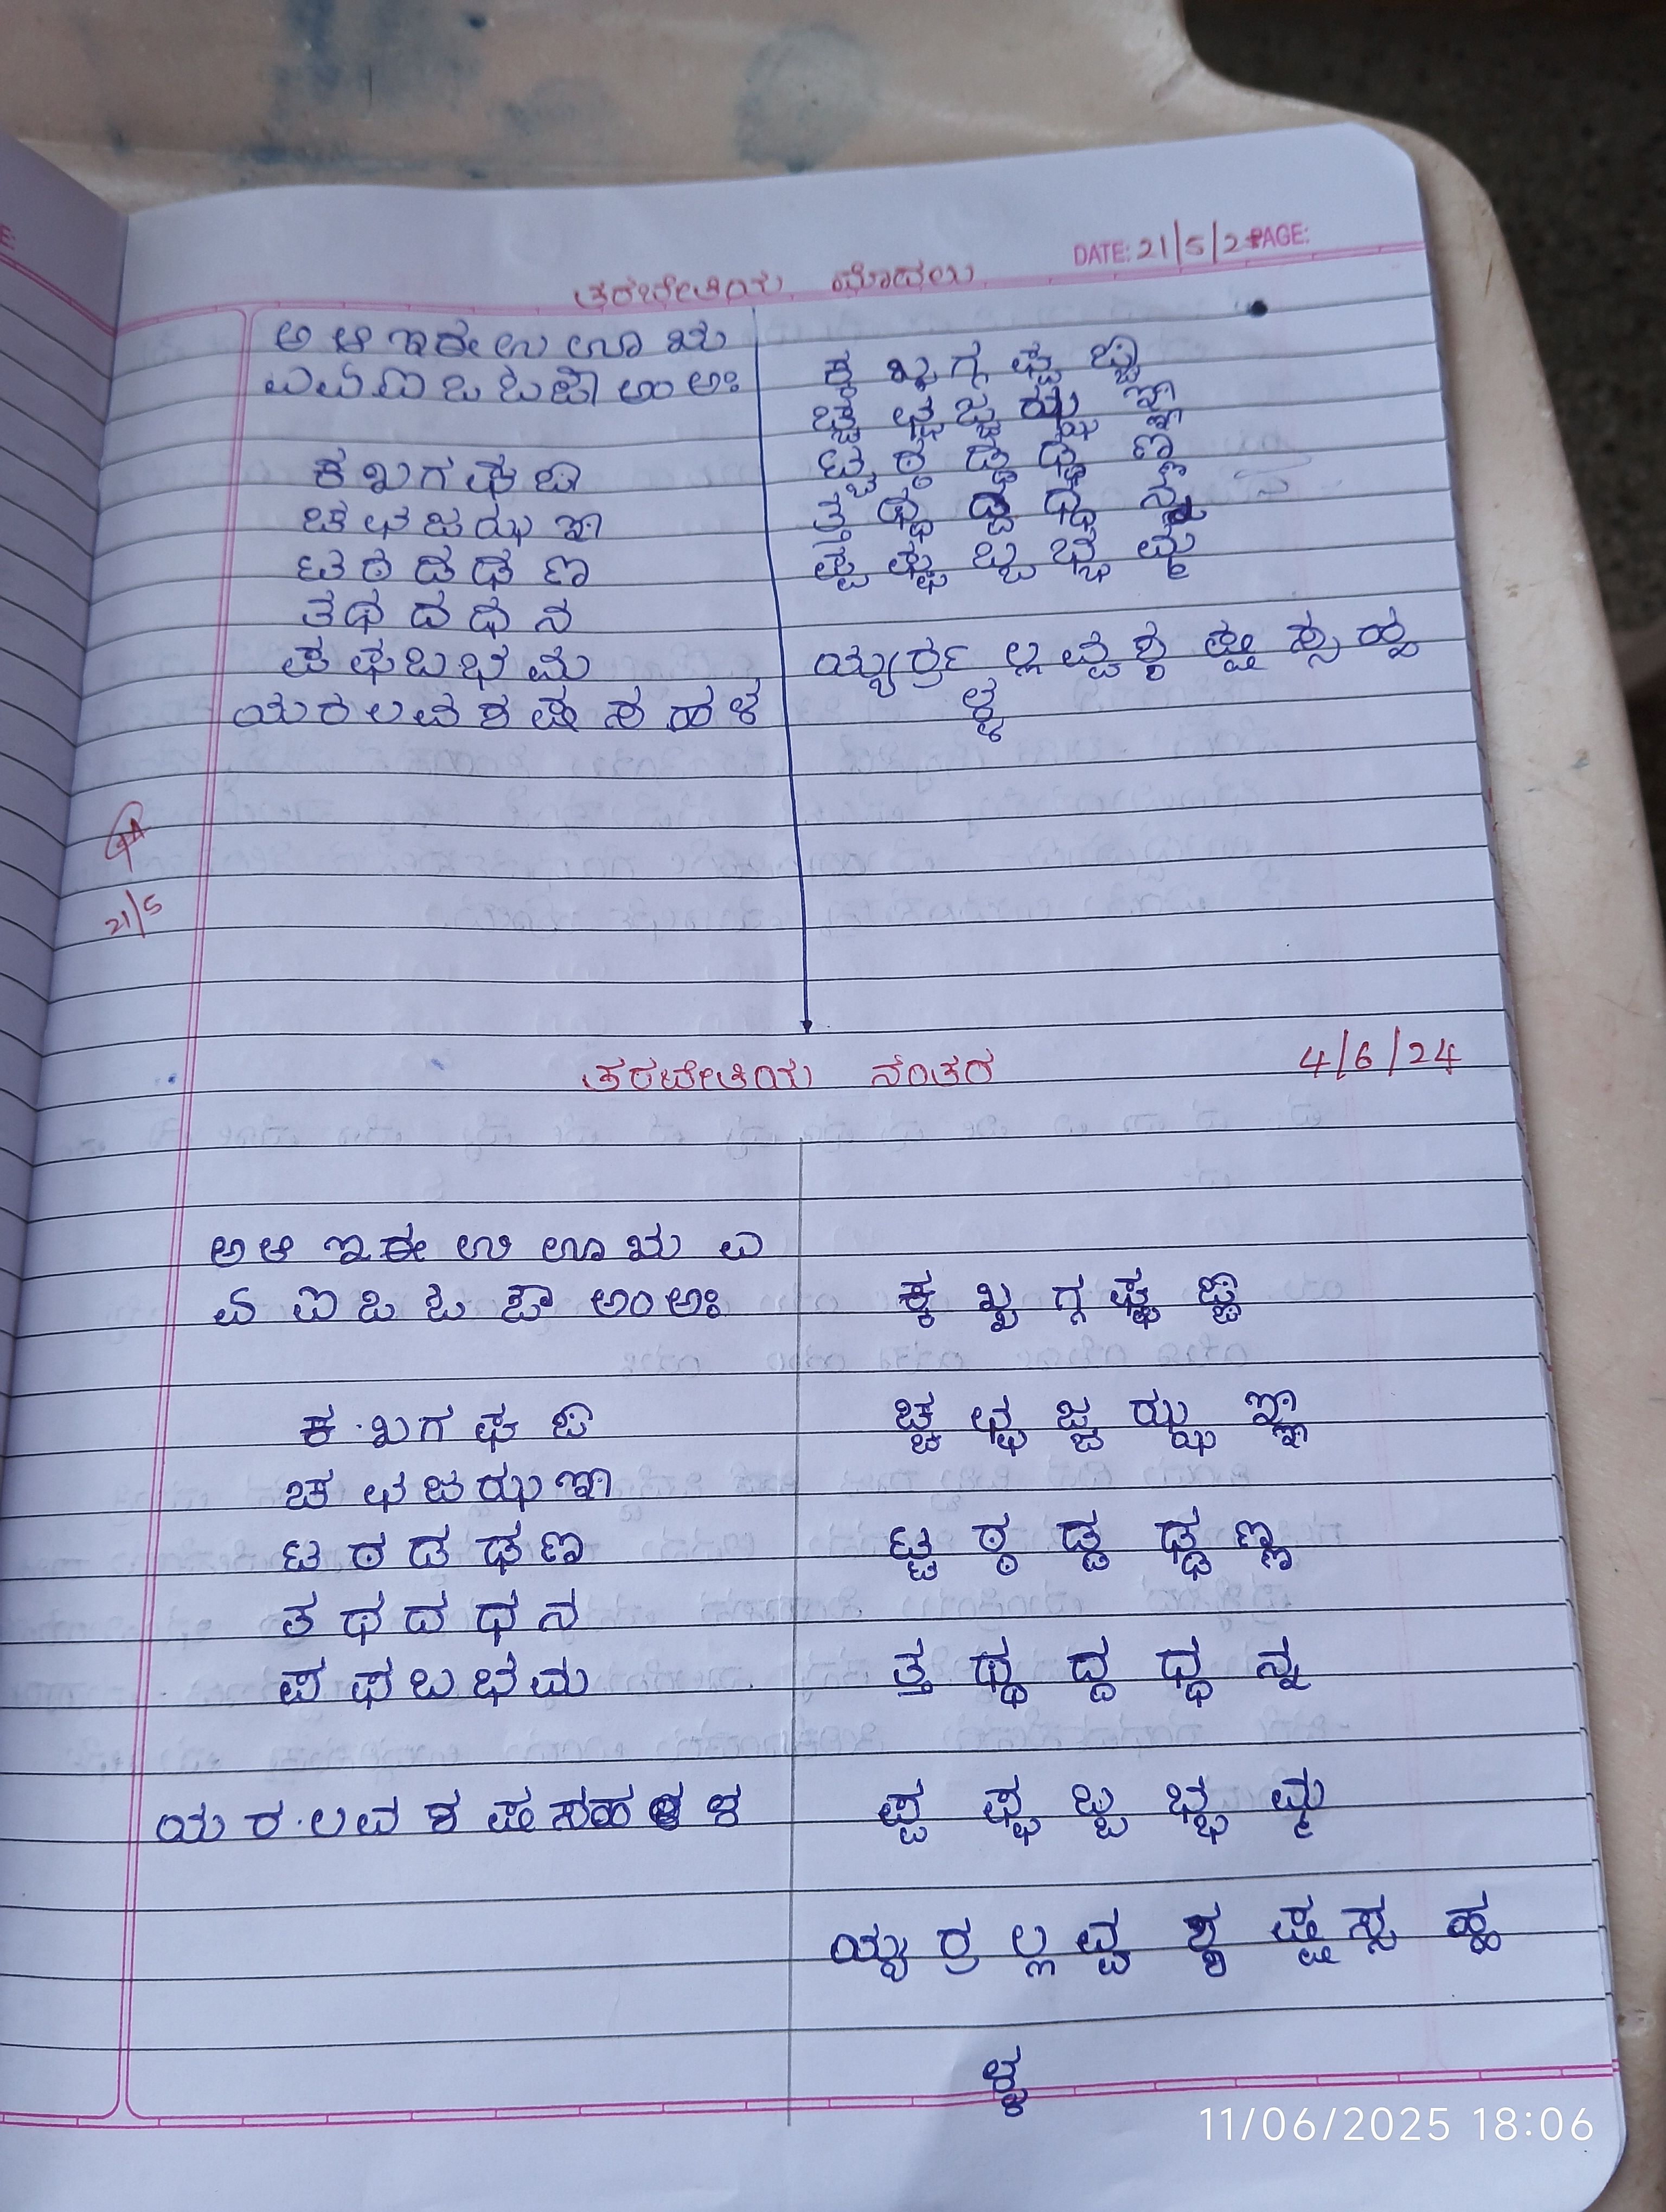 DATE: 21/5/2 PAGE:
ತರಬೇತಿಯ ಮೊದಲು
ಅ ಆ ಇ ಈ ಉ ಊ ಋ
ಎ ಏ ಐ ಒ ಓ ಔ ಅಂ ಅಃ
ಕ ಖ ಗ ಘ ಙ
ಚ ಛ ಜ ಝ ಞ
ಟ ಠ ಡ ಢ ಣ
ತ ಥ ದ ಧ ನ
ಪ ಫ ಬ ಭ ಮ
ಯ ರ ಲ ವ ಶ ಷ ಸ ಹ ಳ
ಕ್ಕ ಖ್ಖ ಗ್ಗ ಘ್ಘ ಙ್ಙ
ಚ್ಚ ಛ್ಛ ಜ್ಜ ಝ್ಝ ಞ್ಞ
ಟ್ಟ ಠ್ಠ ಡ್ಡ ಢ್ಢ ಣ್ಣ
ತ್ತ ಥ್ಥ ದ್ದ ಧ್ಧ ನ್ನ
ಪ್ಪ ಫ್ಫ ಬ್ಬ ಭ್ಭ ಮ್ಮ
ಯ್ಯ ರ್ರ ಲ್ಲ ವ್ವ ಶ್ಶ ಷ್ಷ ಸ್ಸ ಹ್ನ
ಳ್ಳ
21/5
ತರಬೇತಿಯ ನಂತರ 4/6/24
ಅ ಆ ಇ ಈ ಉ ಊ ಋ ಎ
ಏ ಐ ಒ ಓ ಔ ಅಂ ಅಃ
ಕ ಖ ಗ ಘ ಙ
ಚ ಛ ಜ ಝ ಞ
ಟ ಠ ಡ ಢ ಣ
ತ ಥ ದ ಧ ನ
ಪ ಫ ಬ ಭ ಮ
ಯ ರ ಲ ವ ಶ ಷ ಸ ಹ ಳ
ಕ್ಕ ಖ್ಖ ಗ್ಗ ಘ್ಘ ಙ್ಙ
ಚ್ಚ ಛ್ಛ ಜ್ಜ ಝ್ಝ ಞ್ಞ
ಟ್ಟ ಠ್ಠ ಡ್ಡ ಢ್ಢ ಣ್ಣ
ತ್ತ ಥ್ಥ ದ್ದ ಧ್ಧ ನ್ನ
ಪ್ಪ ಫ್ಫ ಬ್ಬ ಭ್ಭ ಮ್ಮ
ಯ್ಯ ರ್ರ ಲ್ಲ ವ್ವ ಶ್ಶ ಷ್ಷ ಸ್ಸ ಹ್ಹ
ಳ್ಳ
11/06/2025 18:06